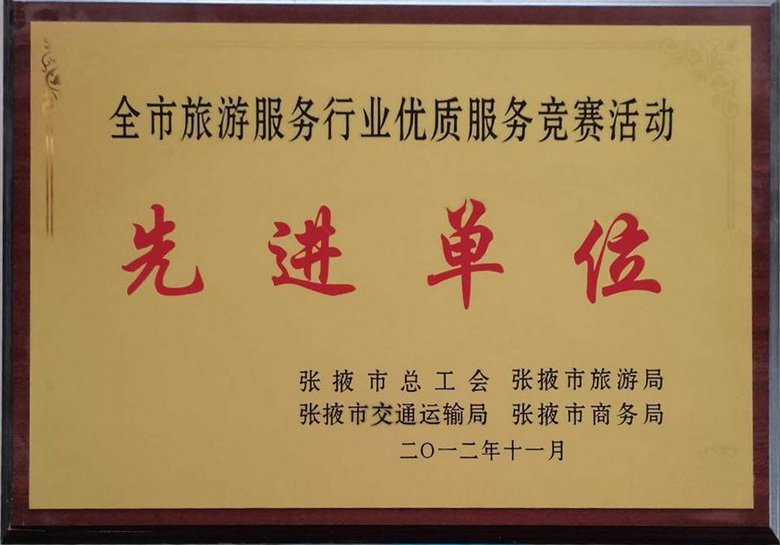 全市旅游服务行业优质服务竞赛活动
先进单位
张掖市总工会 张掖市旅游局
张掖市交通运输局 张掖市商务局
二〇一二年十一月